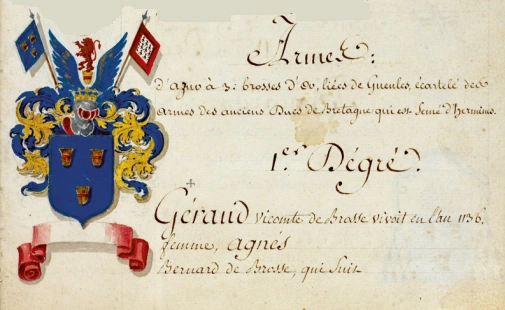 Armes:
d'azur à 3: brosses d'Or, liées de Gueules, écartelé des
armes des anciens Ducs de Bretagne qui est Semé d'hermines.
1.er Dégré.
Géraud Vicomte de Brosse vivoit en l'an 1136.
femme, agnés
Bernard de Brosse, qui Suit